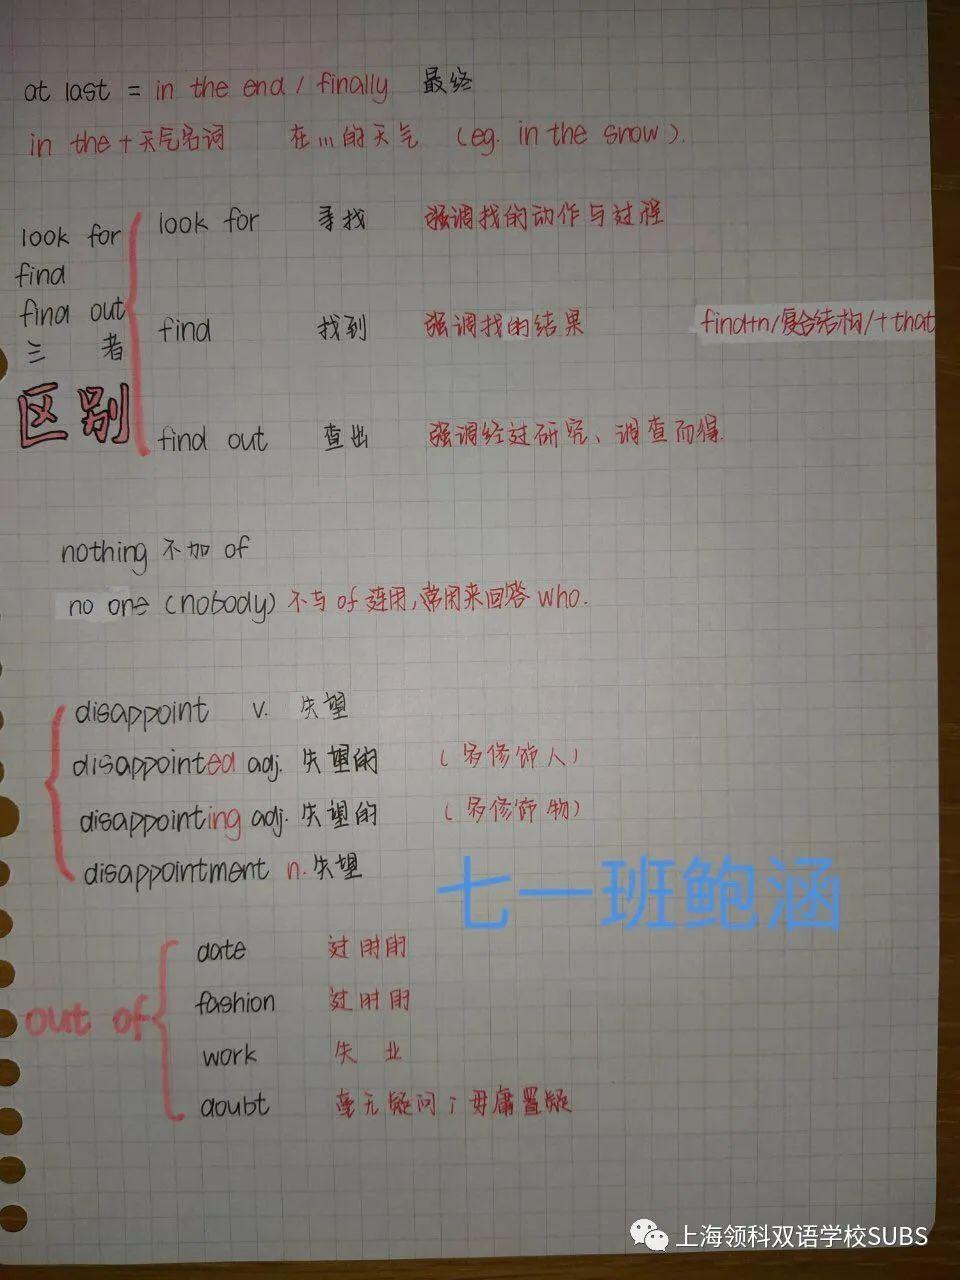 at last = in the end / finally 最终
in the + 天气名词 在…的天气 (eg. in the snow).
look for
find
find out
三者
区别
look for 寻找 强调找的动作与过程
find 找到 强调找的结果 find+n/复合结构/+that
find out 查出 强调经过研究、调查而得.
nothing 不加 of
no one (nobody) 不与 of 连用,常用来回答 who.
disappoint v. 失望
disappointed adj. 失望的 (多修饰人)
disappointing adj. 失望的 (多修饰物)
disappointment n. 失望
七一班鲍涵
out of
date 过时的
fashion 过时的
work 失业
doubt 毫无疑问;毋庸置疑
上海领科双语学校SUBS